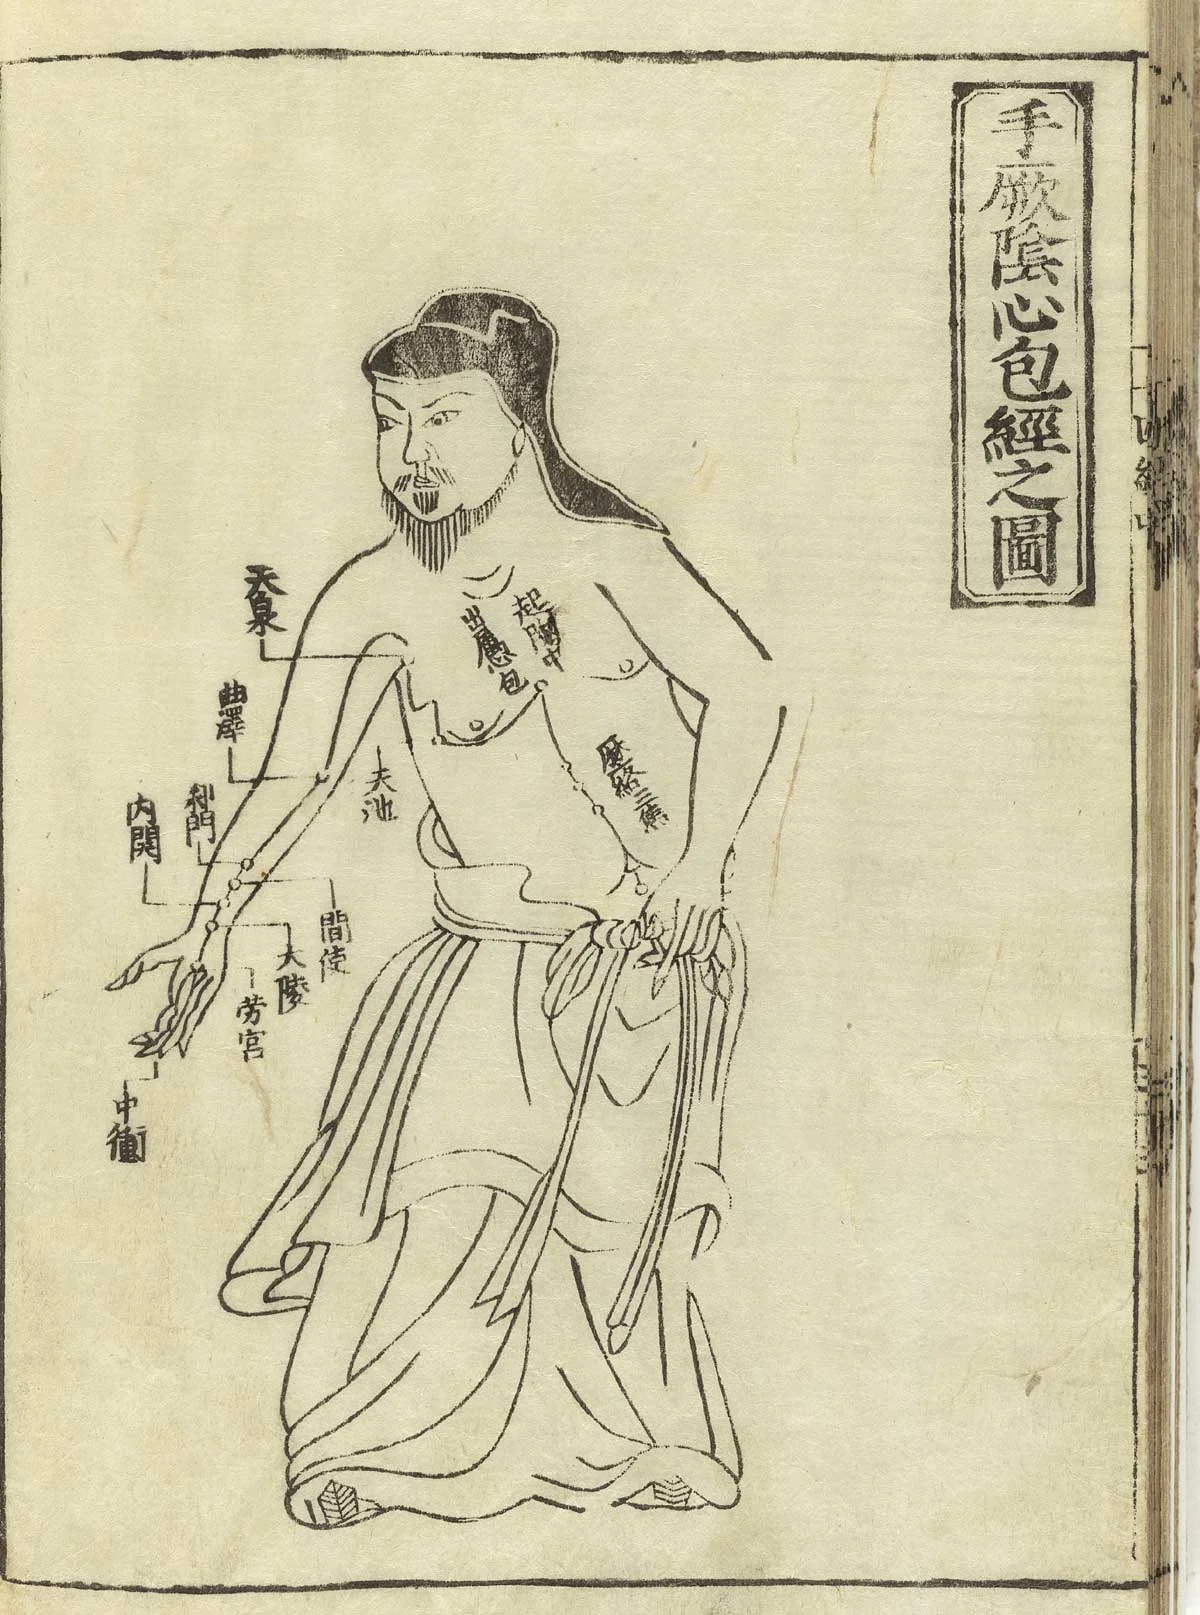 手厥陰心包經之圖
起胸中
出屬心包
歷絡三焦
天泉
曲澤
郄門
內關
天池
間使
大陵
勞宮
中衝